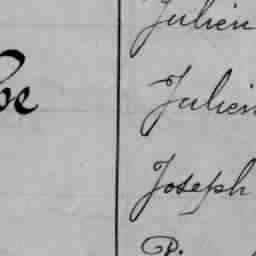 Julien
Julien
Joseph
P.